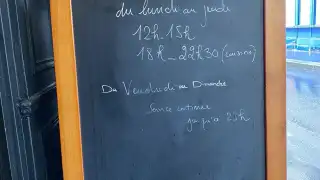 du lundi au jeudi
12h 15h
18h - 22h30 (cuisine)
Du Vendredi au Dimanche
Service continue
jusqu'à 23h